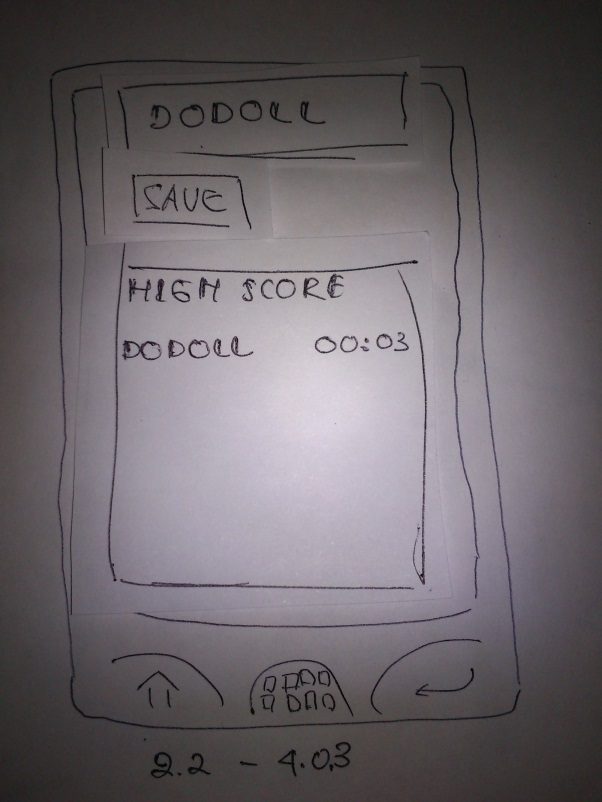 DODOLL
SAVE
HIGH SCORE
DODOLL 00:03
2.2 - 4.0.3